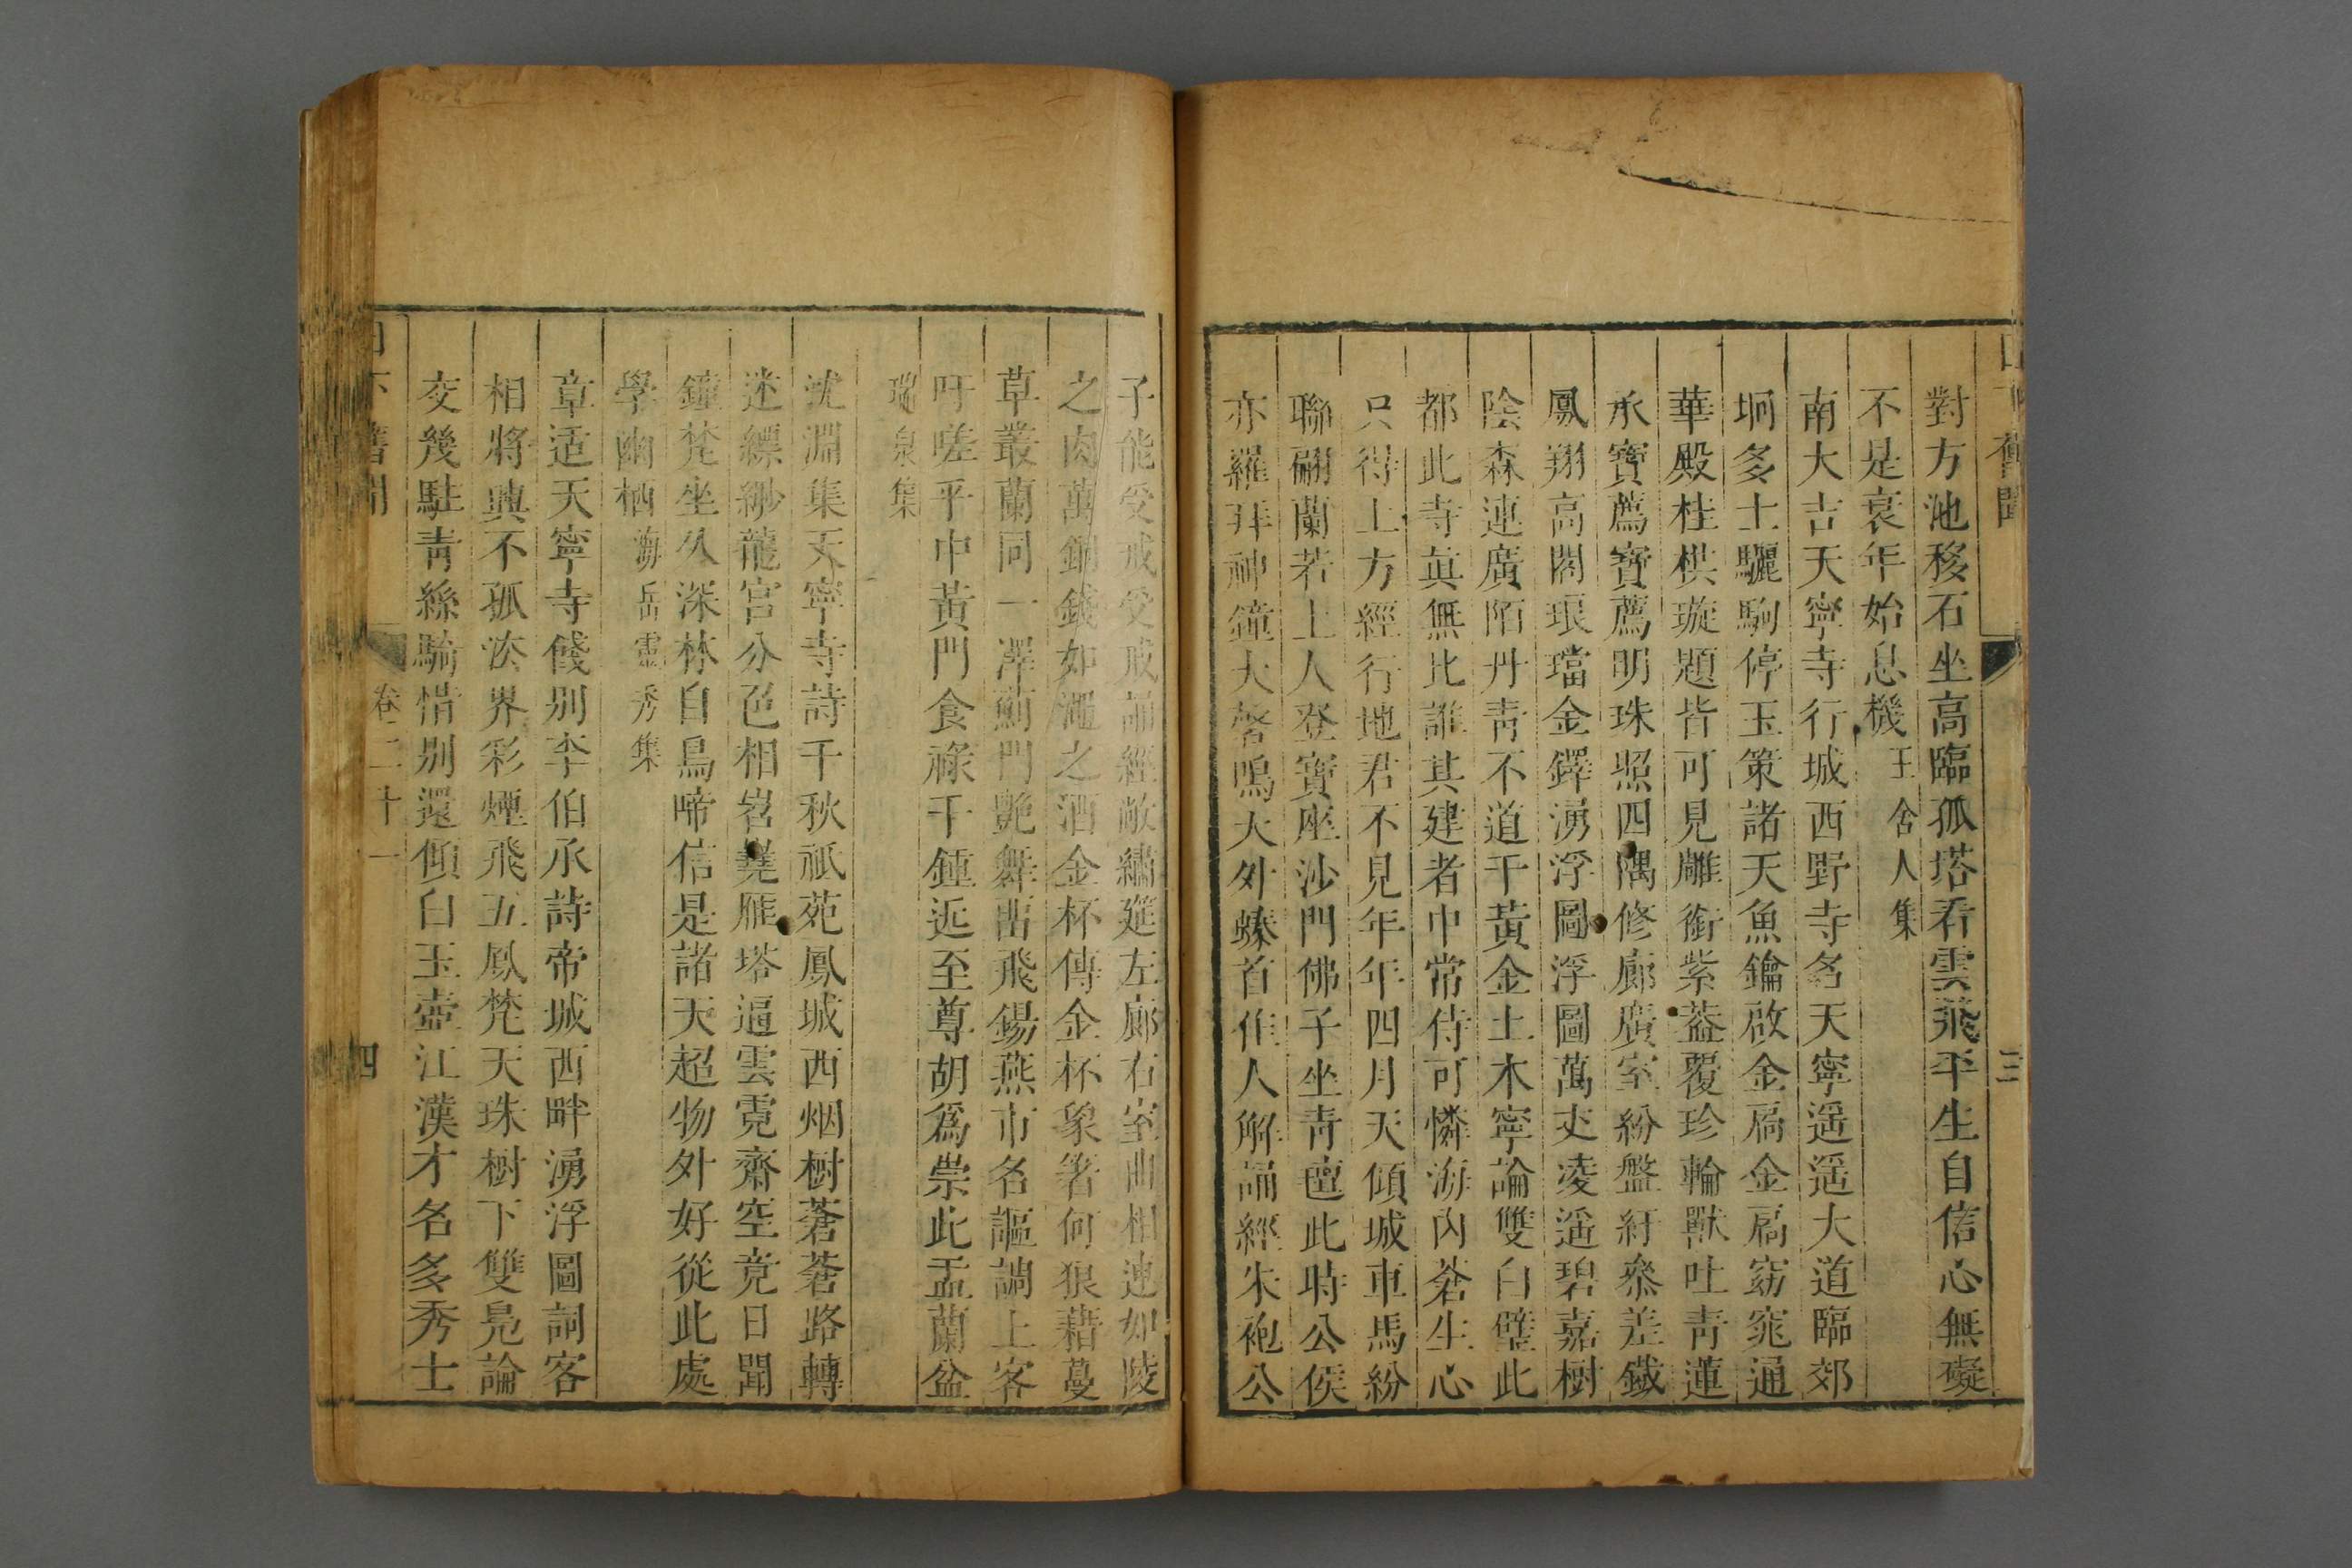 舊聞
三
對方池移石坐高臨孤塔看雲飛平生自信心無礙
不是衰年始息機王舍人集
南大吉天寧寺行城西野寺名天寧遥遥大道臨郊
坰多士驪駒停玉策諸天魚鑰啟金扃金扃窈窕通
華殿桂栱璇題皆可見雕銜紫葢覆珍輪獸吐青蓮
承寶薦寶薦明珠照四隅修廊廣室紛盤紆參差鐵
鳳翔高閣琅璫金鐸湧浮圖浮圖萬丈凌遥碧嘉樹
陰森連廣陌丹青不道千黃金土木寧論雙白璧此
都此寺真無比誰其建者中常侍可憐海内蒼生心
只得上方經行地君不見年年四月天傾城車馬紛
聯翩蘭若上人登寶座沙門佛子坐青氊此時公侯
亦羅拜神鐘大磬鳴大外螓首佳人解誦經朱袍公
子能受戒受戒誦經敞繡筵左廊右室曲相連如陵
之肉萬錢如澠之酒金杯傳金杯象箸何狼藉蔓
草叢蘭同一澤薊門艷舞出飛錫燕市名謳調上客
吁嗟乎中黃門食祿千鍾近至尊胡爲祟此盂蘭盆
瑞泉集
沈淵集天寧寺詩千秋祇苑鳳城西烟樹蒼蒼路轉
迷縹緲龍宮分色相岧嶤雁塔逼雲霓齋空竟日聞
鐘梵坐久深林自鳥啼信是諸天超物外好從此處
學幽栖海岳靈秀集
章适天寧寺餞别李伯承詩帝城西畔湧浮圖詞客
相將興不孤沵界彩煙飛五鳳梵天珠樹下雙鳧論
交幾駐青絲騎惜别還傾白玉壺江漢才名多秀士
日下舊聞
卷二十一
四